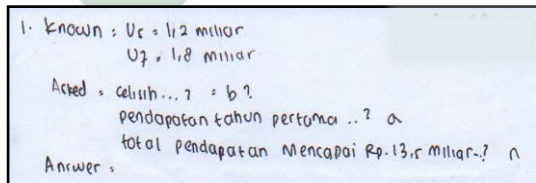 1. Known : U5 = 1,2 miliar
U7 = 1,8 miliar
Asked : selisih...? = b?
pendapatan tahun pertama ..? a
total pendapatan mencapai Rp. 13,5 miliar..? n
Answer :